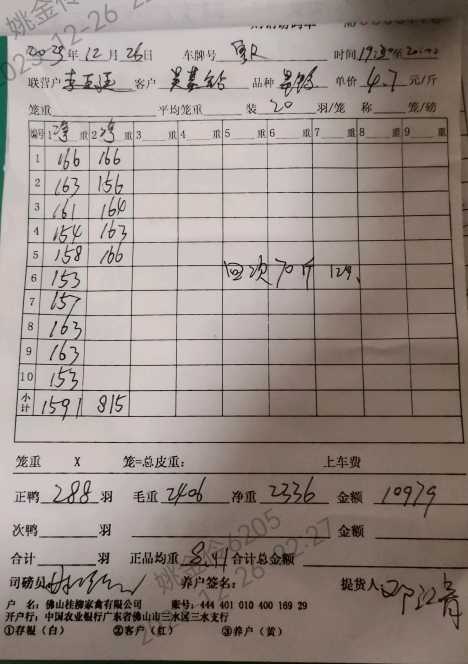 2025年12月26日 车牌号 时间19:30至20:02
联营户 客户 品种 单价4.7元/斤
笼重 平均笼重 装20羽/笼 称 笼/磅
编号 1净重 2净重 3重 4重 5重 6重 7重 8重 9重
1 166 166
2 163 156
3 161 164
4 154 163
5 158 166
回次70斤 12只
6 153
7 157
8 163
9 163
10 153
小计 1591 815
笼重 X 笼=总皮重: 上车费
正鸭288羽 毛重2406 净重2336 金额10979
次鸭 羽 金额
合计 羽 正品均重8.11 合计总金额
司磅员 养户签名: 提货人
户 名:佛山桂柳家禽有限公司 账号:444 401 010 400 169 29
开户行:中国农业银行广东省佛山市三水区三水支行
①存根(白) ②客户(红) ③养户(黄)